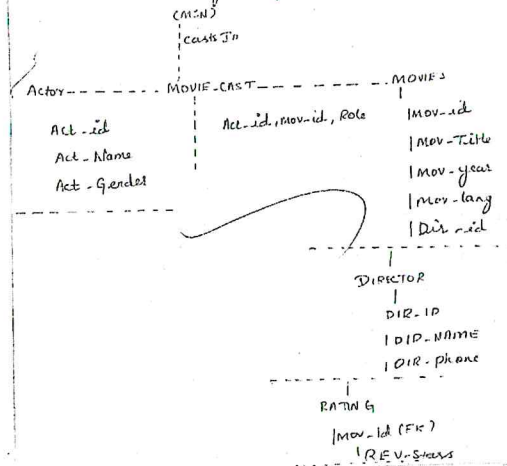 (M:N)
Casts In
Actor MOVIE-CAST MOVIES
Act-id
Act-Name
Act-Gender
Act-id, Mov-id, Role
Mov-id
Mov-Title
Mov-year
Mov-lang
Dir-id
DIRECTOR
DIR-ID
DID-NAME
DIR-phone
RATING
Mov-Id (FK)
REV-Stars